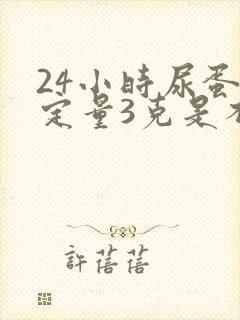 24小時尿蛋
定量3克是不
許蓓蓓